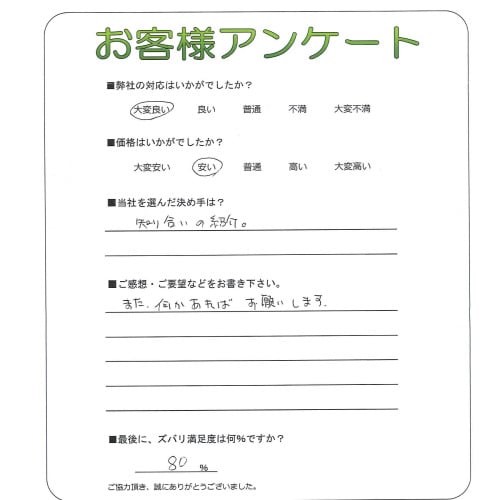 お客様アンケート
■弊社の対応はいかがでしたか？
大変良い 良い 普通 不満 大変不満
■価格はいかがでしたか？
大変安い 安い 普通 高い 大変高い
■当社を選んだ決め手は？
知り合いの紹介。
■ご感想・ご要望などをお書き下さい。
また、何かあれば お願いします。
■最後に、ズバリ満足度は何%ですか？
80 %
ご協力頂き、誠にありがとうございました。